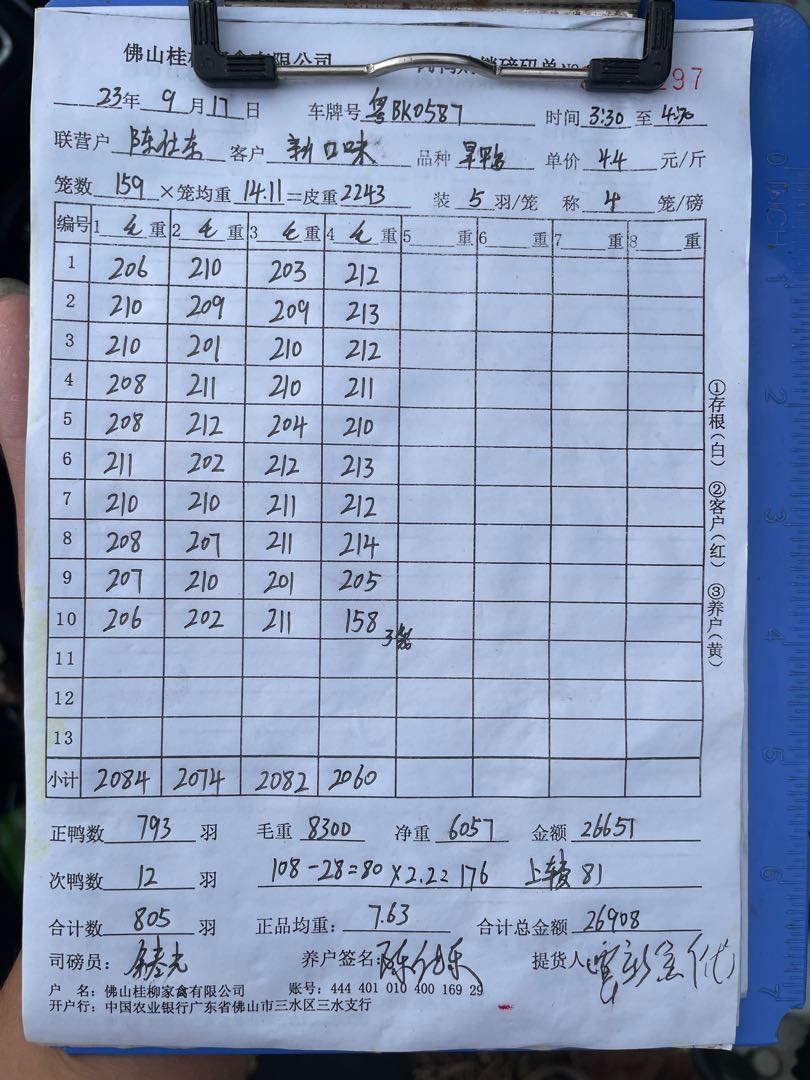 佛山桂柳家禽有限公司 销磅码单 №297
23年 9 月 17 日 车牌号 粤BK0587 时间 3:30 至 4:30
联营户 陈仕东 客户 新口味 品种 旱鸭 单价 4.4 元/斤
笼数 159 ×笼均重 14.11 =皮重 2243 装 5 羽/笼 称 4 笼/磅
编号 1 毛 重 2 毛 重 3 毛 重 4 毛 重 5 重 6 重 7 重 8 重
1 206 210 203 212
2 210 209 209 213
3 210 201 210 212
4 208 211 210 211
5 208 212 204 210
6 211 202 212 213
7 210 210 211 212
8 208 207 211 214
9 207 210 201 205
10 206 202 211 158 3笼
11
12
13
小计 2084 2074 2082 2060
正鸭数 793 羽 毛重 8300 净重 6057 金额 26651
次鸭数 12 羽 108-28=80×2.2=176 上车 81
合计数 805 羽 正品均重: 7.63 合计总金额 26908
司磅员: 养户签名: 提货人:
户 名: 佛山桂柳家禽有限公司 账号: 444 401 010 400 169 29
开户行: 中国农业银行广东省佛山市三水区三水支行
①存根(白) ②客户(红) ③养户(黄)
0 INCH 1 2 3 4 5 6 7